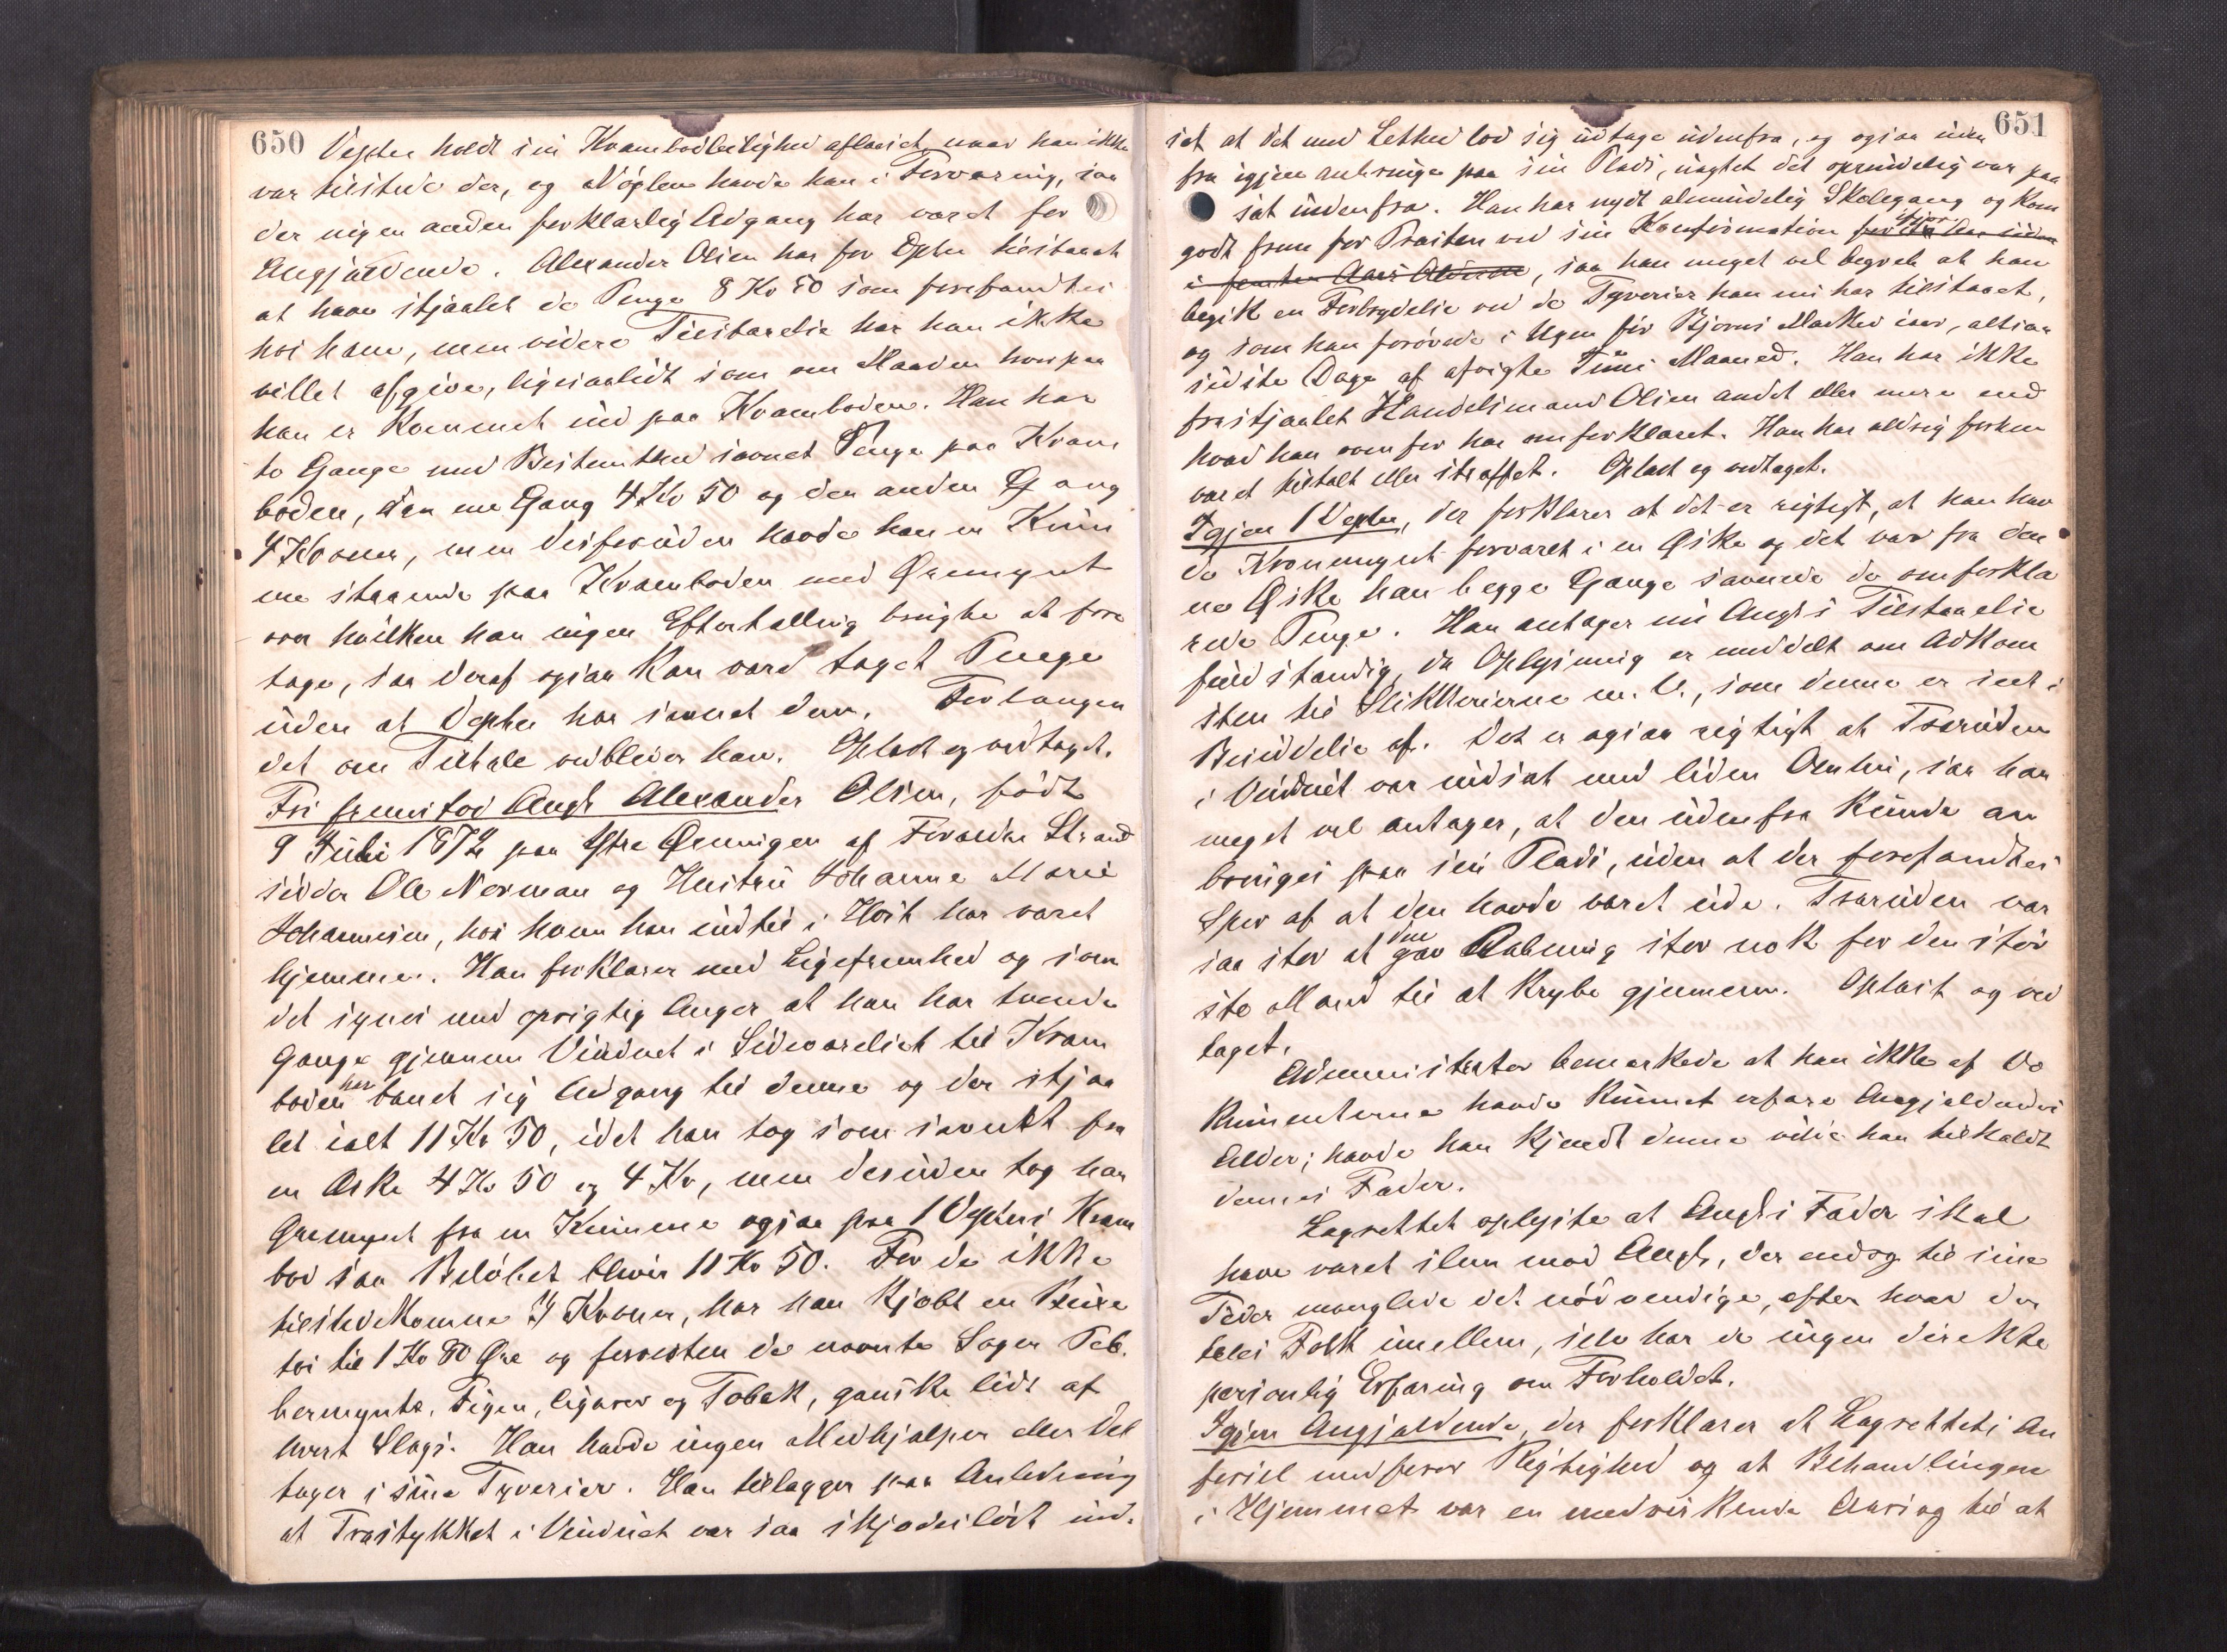 650
Depten holdt sin Krambodleilighed aflaaset, naar han ikke
var tilstede der, og Nøglen havde han i Forvaring, saa
der ingen anden forklarlig Adgang har været for
Angjældende. Alexander Olsen har for Depten tilstaaet
at have stjaalet de Penge 8 Kr 50 som forefandtes
hos ham, men videre Tilstaaelse har han ikke
villet afgive, ligesaalidt som om Maaden hvorpaa
han er kommet ind paa Kramboden. Han har
to Gange med Bestemthed savnet Penge paa Kram
boden, den ene Gang 4 Kr 50 og den anden Gang
4 Kroner, men desforuden havde han en Krum
me staaende paa Kramboden med Øremynt
over hvilken han ingen Eftertælling brugte at fore
tage, saa deraf ogsaa kan være taget Penge
uden at Depten har savnet dem. Forlangen
det om Tiltale vedbliver han. Oplæst og vedtaget.
Fri fremstod Angj. Alexander Olsen, født
9 Juli 1872 paa Ytre Qvænnigen af Forældre Strand
sidder Ole Norman og Hustru Johanne Marie
Johannesen, hos hvem han indtil i Høst har været
hjemme. Han forklarer med Ligefremhed og som
det synes med oprigtig Anger at han har tvende
Gange gjennem Vinduet i Sideværelset til Kram
boden har banet sig Adgang til denne og der stjaa
let ialt 11 Kr 50, idet han tog som savnet fra
en Æske 4 Kr 50 og 4 Kr, men desuden tog han
Øremynt fra en Krumme ogsaa paa 1 Deptens Kram
bod saa Beløbet blev 11 Kr 50. For de ikke
tilstedekomne 4 Kroner, har han kjøbt en Buxe
tøi til 1 Kr 80 Øre og forresten de nævnte Sager Peb.
bermynte, Figen, Cigarer og Tobak, ganske lidt af
hvert Slags. Han havde ingen Medhjælper eller Del
tager i sine Tyverier. Han tillægger paa Anledning
at Træstykket i Vinduet var saa skjødesløst ind.
651
sat at det med Lethed lod sig udtage udenfra, og ogsaa uden
fra igjen anbringe paa sin Plads, uagtet det oprindelig var paa
sat indenfra. Han har nydt almindelig Skolegang og kom
godt frem for Præsten ved sin Konfirmation ifjor
i femten Aars Alderen, saa han meget vel begreb at han
begik en Forbrydelse ved de Tyverier han nu har tilstaaet,
og som han forøvede i Ugen før Bjørns Marked iaar, altsaa
sidste Dage af afvigte Juni Maaned. Han har ikke
frastjaalet Handelsmand Olsen andet eller mere end
hvad han ovenfor har omforklaret. Han har aldrig forhen
været tiltalt eller straffet. Oplæst og vedtaget.
Igjen 1 Depten, der forklarer at det er rigtigt, at han hav
de Kronemynt forvaret i en Æske og det var fra den
ne Æske han begge Gange savnede de omforkla
rede Penge. Han antager nu Angj.s Tilstaaelse
fuldstændig, da Oplysning er meddelt om Adkom
sten til Slikkerierne m. V., som denne er seet i
Besiddelse af. Det er ogsaa rigtigt at Træruden
i Vinduet var indsat med liden Omhu, saa han
meget vel antager, at den udenfra kunde an
bringes paa sin Plads, uden at der forefandtes
Spor af at den havde været ude. Træruden var
saa stor at den gav Aabning stor nok for den stør
ste Mand til at krybe gjennem. Oplæst og ved
taget.
Administrator bemærkede at han ikke af Do
kumenterne havde kunnet erfare Angjældendes
Alder; havde han kjendt denne vilde han tilkaldt
dennes Fader.
Lagrettet oplyste at Angj.s Fader skal
have været slem mod Angj., der endog til sine
Tider manglede det nødvendige, efter hvad der
tales Folk imellem, selv har de ingen direkte
personlig Erfaring om Forholdet.
Igjen Angjældende, der forklarer at Lagrettets An
førsel medfører Rigtighed og at Behandlingen
i Hjemmet var en medvirkende Aarsag til at